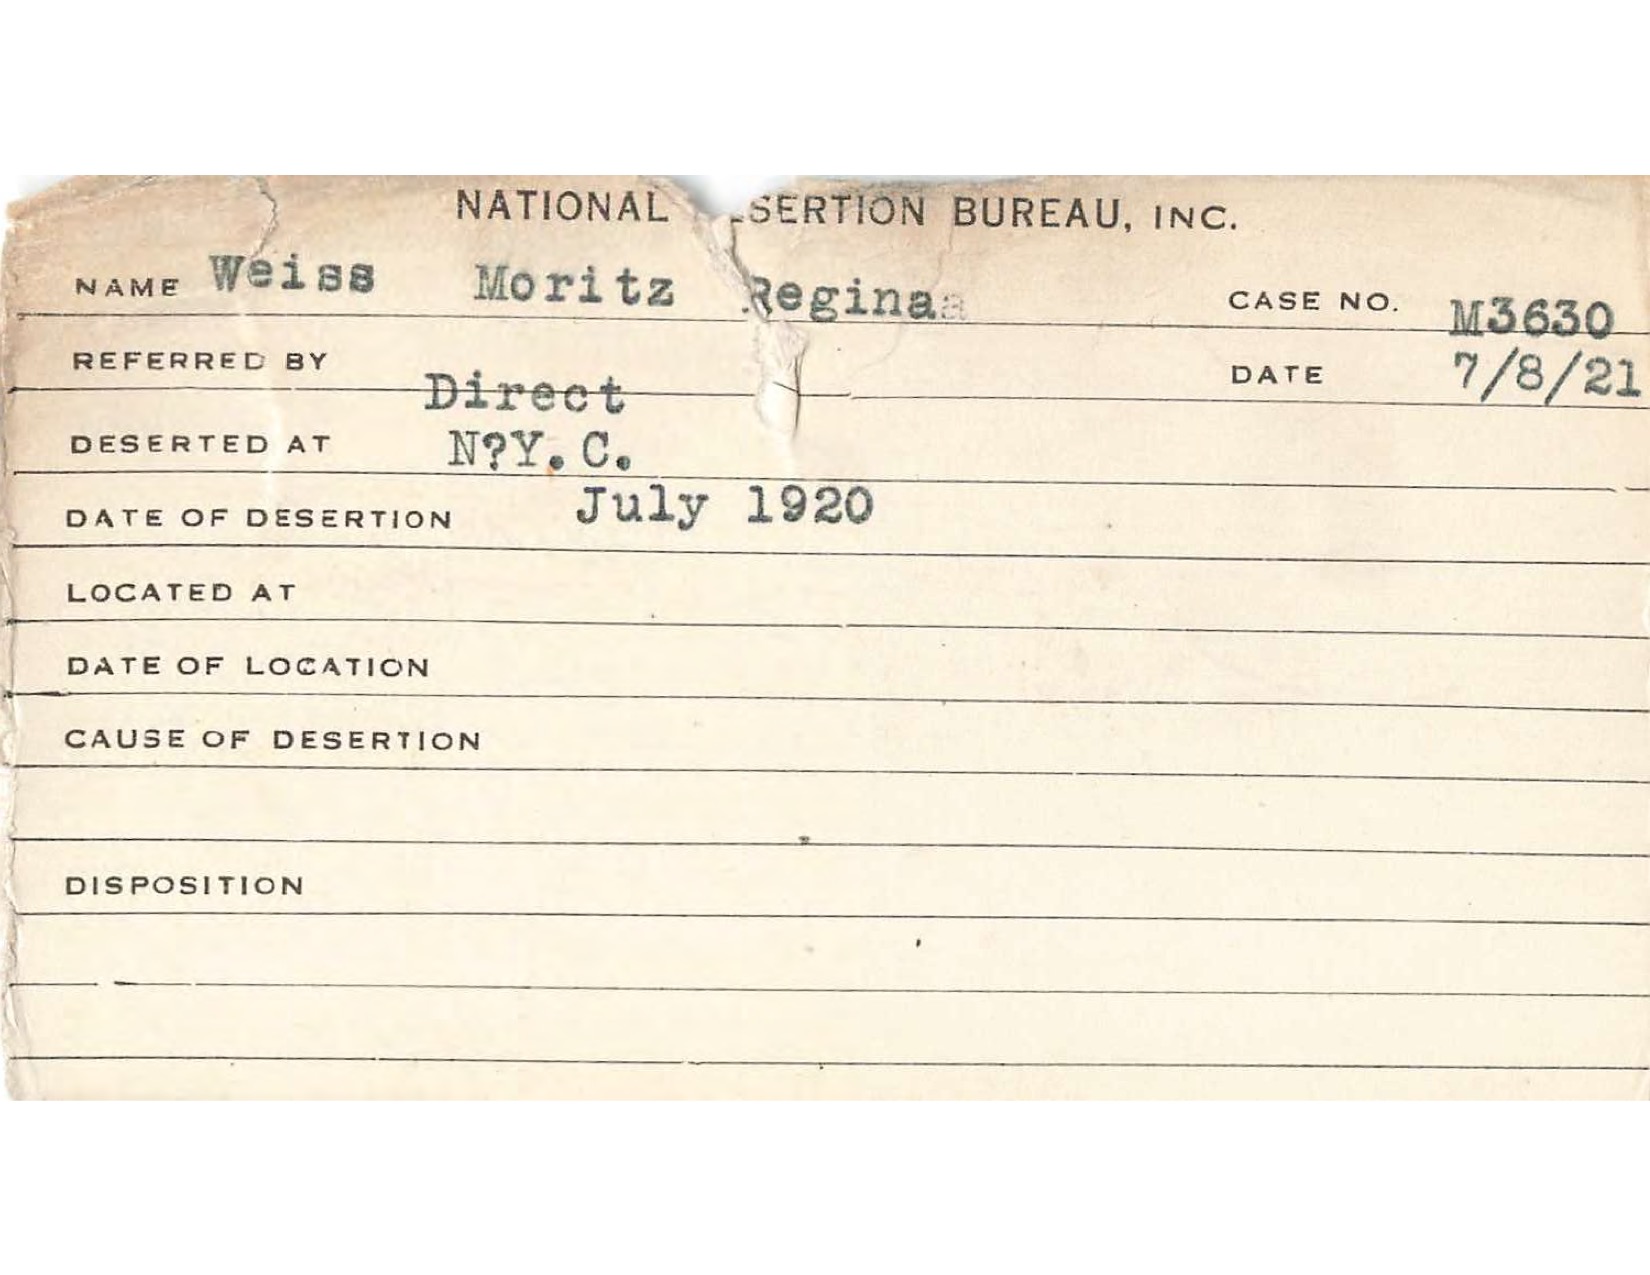 NATIONAL ESERTION BUREAU, INC.
NAME Weiss Moritz Regina CASE NO. M3630
REFERRED BY Direct DATE 7/8/21
DESERTED AT N?Y. C.
DATE OF DESERTION July 1920
LOCATED AT
DATE OF LOCATION
CAUSE OF DESERTION
DISPOSITION